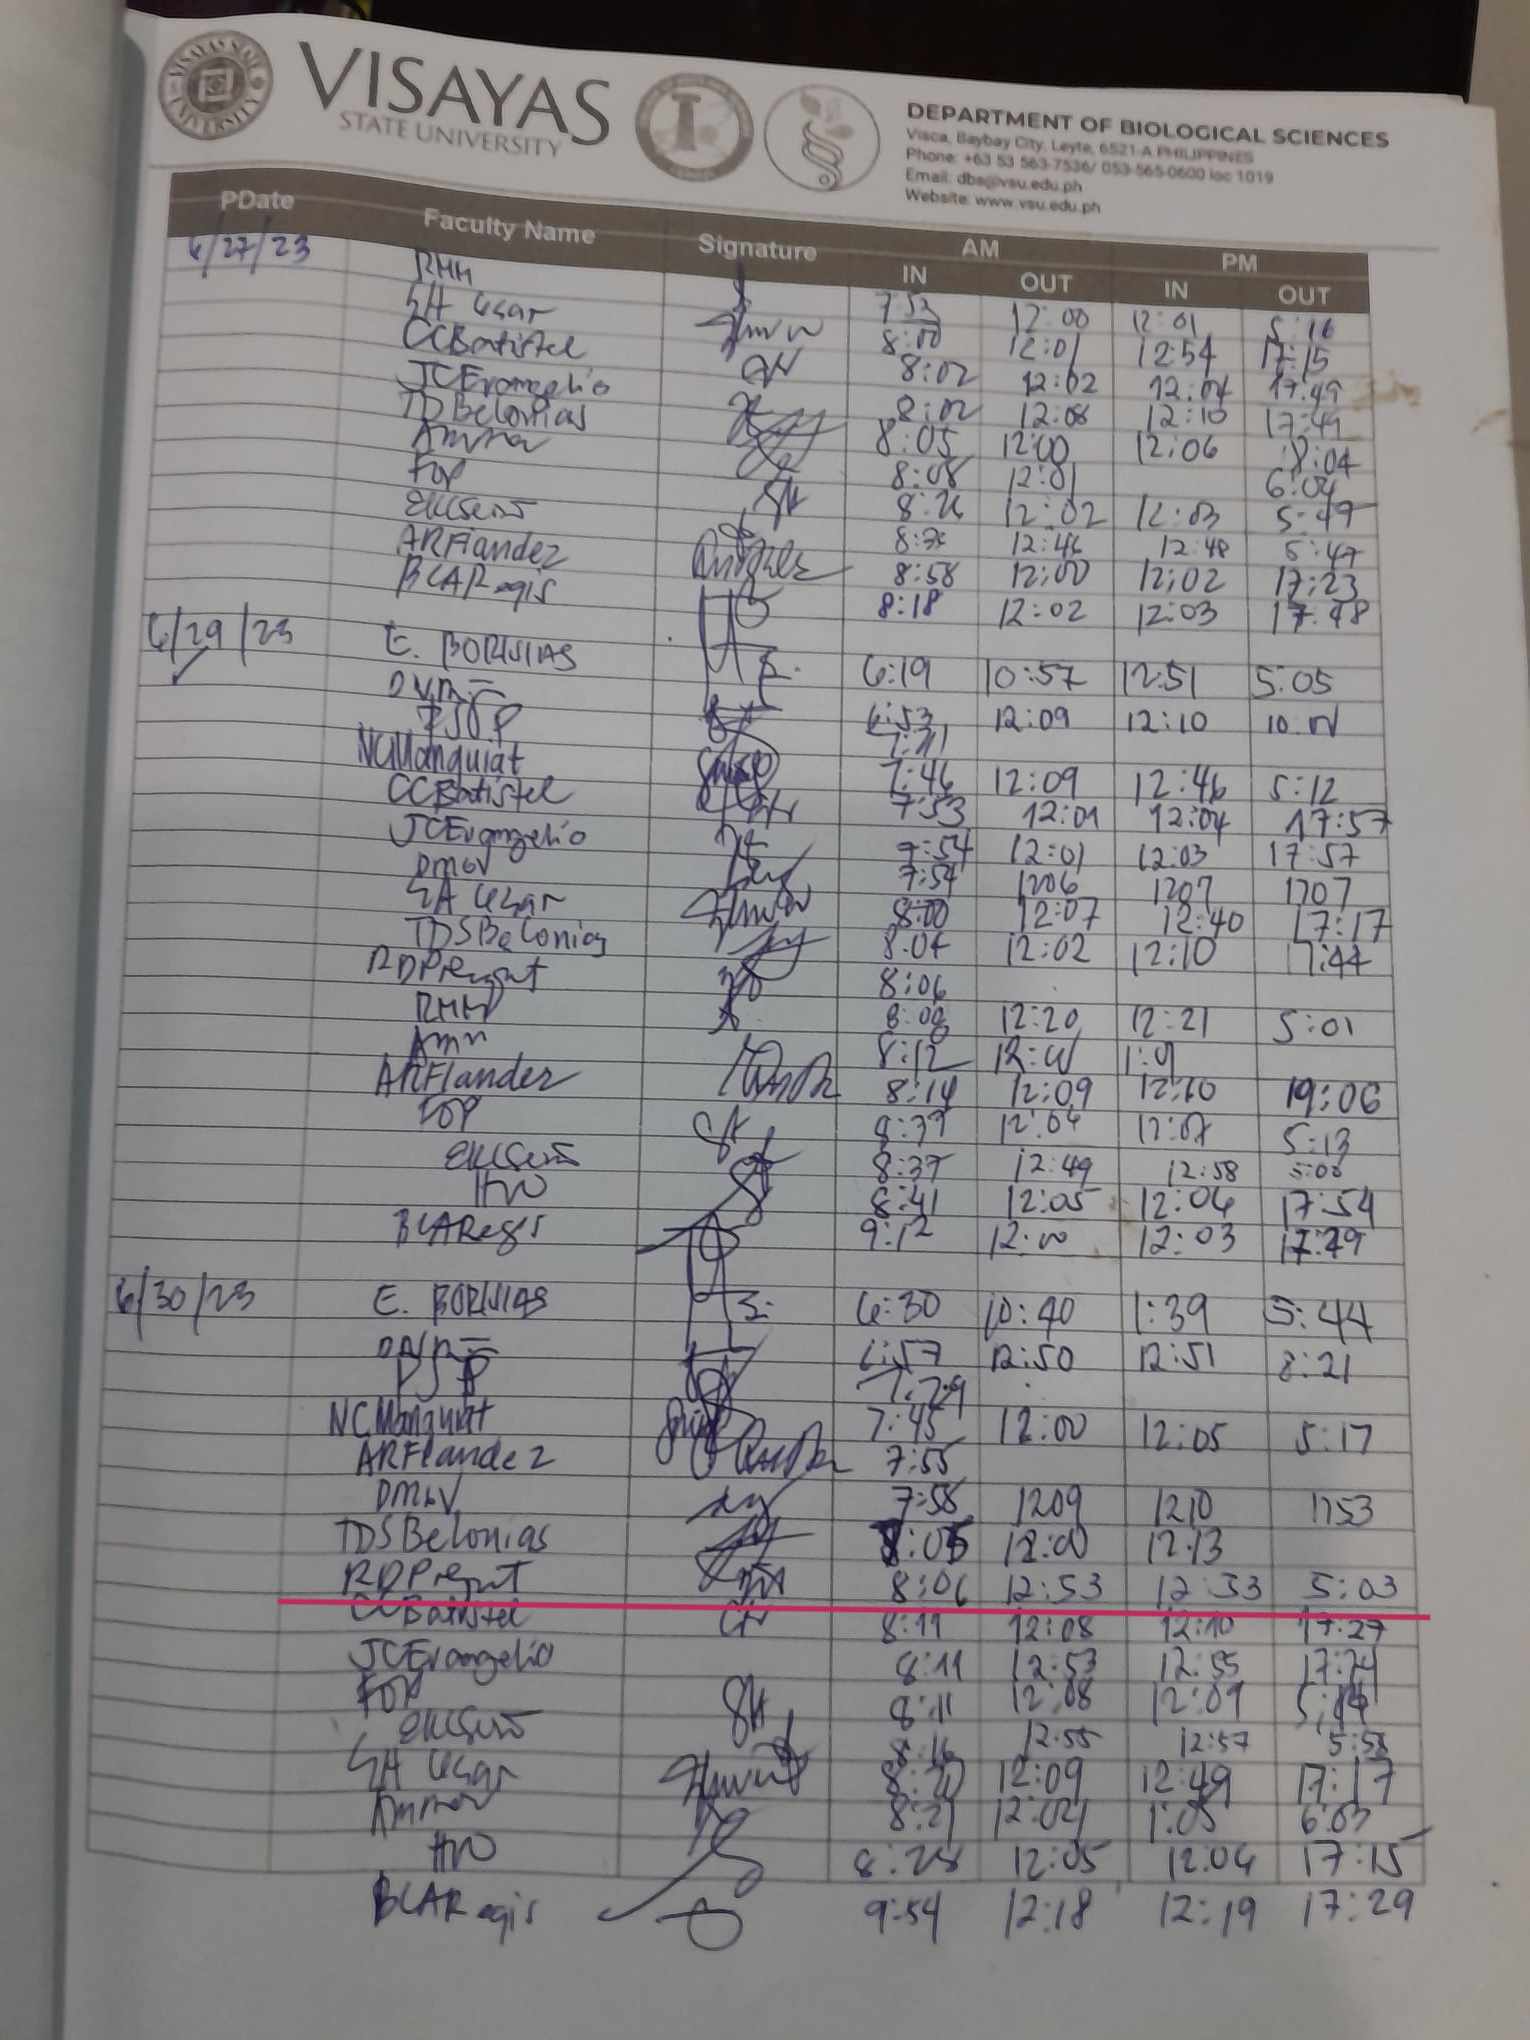 VISAYAS
STATE UNIVERSITY
DEPARTMENT OF BIOLOGICAL SCIENCES
Visca, Baybay City, Leyte, 6521-A PHILIPPINES
Phone: +63 53 563-7536/ 053-565-0600 loc 1019
Email: dbs@vsu.edu.ph
Website: www.vsu.edu.ph
PDate Faculty Name Signature AM PM
IN OUT IN OUT
6/27/23 RHH 7:53 12:00 12:01 5:16
SA Cesar 8:00 12:01 12:54 17:15
CCBatistel 8:02 12:02 12:04 17:49
JCEvangelio 8:02 12:08 12:10 17:49
TDSBelonias 8:05 12:00 12:06 18:04
8:08 12:01 6:04
FOP 12:02 12:03 5:49
12:46 12:48 5:47
ARFlandez 8:58 12:00 12:02 17:23
BCARegis 8:18 12:02 12:03 17:48
6/29/23 E. BORUSIAS 6:19 10:57 12:51 5:05
6:53 12:09 12:10
PSJP
NCManquiat 7:46 12:09 12:46 5:12
CCBatistel 7:53 12:01 12:04 17:57
JCEvangelio 7:54 12:01 12:03 17:57
7:54 1206 1207 1707
SA Cesar 8:00 12:07 12:40 17:17
TDSBelonias 8:04 12:02 12:10 17:44
8:06
RHH 8:08 12:20 12:21 5:01
8:12
ARFlandez 8:14 12:09 12:10 19:06
FOP 8:37 12:04 12:07 5:13
8:37 12:49 12:58 5:00
8:41 12:05 12:06 17:54
BCARegis 9:12 12:00 12:03 17:29
6/30/23 E. BORUSIAS 6:30 10:40 1:39 5:44
6:57 12:50 12:51 8:21
PSJP 7:29
NCManquiat 7:45 12:00 12:05 5:17
ARFlandez 7:55
7:58 1209 1210 1753
TDSBelonias 8:05 12:00 12:13
8:06 12:53 12:53 5:03
CCBatistel 8:11 12:08 12:10 17:27
JCEvangelio 8:11 12:53 12:55
FOP 8:11 12:08 12:09 5:14
8:16 12:55 12:57 5:58
SA Cesar 8:20 12:09 12:49 17:17
8:21 12:04 1:05 6:03
8:28 12:05 12:06 17:15
BCARegis 9:54 12:18 12:19 17:29